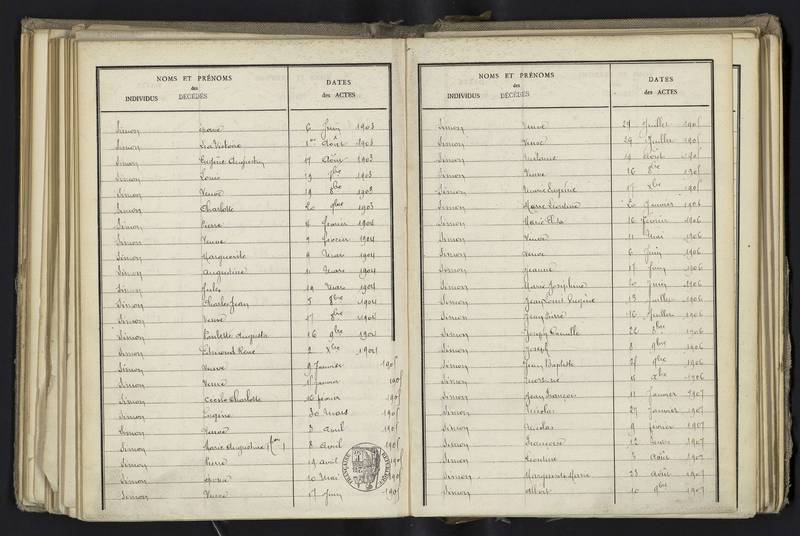 NOMS ET PRÉNOMS
des
INDIVIDUS DÉCÉDÉS
DATES
des ACTES
Simon épouse 6 Juin 1903
Simon Léa Victoire 1er Août 1903
Simon Eugène Augustin 17 Août 1903
Simon Louis 19 1903
Simon Veuve 19 8bre 1903
Simon Charlotte 20 9bre 1903
Simon Pierre 4 février 1904
Simon Veuve 9 février 1904
Simon Marguerite 9 Mars 1904
Simon Augustine 11 Mars 1904
Simon Jules 19 Mars 1904
Simon Charles Jean 5 8bre 1904
Simon Veuve 17 8bre 1904
Simon Paulette Augusta 16 9bre 1904
Simon Edmond René 2 Xbre 1904
Simon Veuve 9 Janvier 1905
Simon Veuve Janvier 1905
Simon Cécile Charlotte 16 février 1905
Simon Eugène 30 Mars 1905
Simon Veuve 3 Avril 1905
Simon Marie Augustine 8 Avril 1905
Simon Pierre 19 avril 1905
Simon épouse 10 Mai 1905
Simon Veuve 17 Juin 1905
NOMS ET PRÉNOMS
des
INDIVIDUS DÉCÉDÉS
DATES
des ACTES
Simon Veuve 27 Juillet 1905
Simon Veuve 29 Juillet 1905
Simon Mélanie 19 Août 1905
Simon Veuve 16 8bre 1905
Simon Eugène 17 Xbre 1905
Simon Marie Léontine 20 Janvier 1906
Simon Marie 16 Février 1906
Simon Veuve 11 Mai 1906
Simon Veuve 6 Juin 1906
Simon Jeanne 17 Juin 1906
Simon Marie Joséphine 20 Juin 1906
Simon Jean Louis Eugène 13 Juillet 1906
Simon Jean Pierre 16 Juillet 1906
Simon Joseph Camille 22 8bre 1906
Simon Joseph 8 9bre 1906
Simon Jean Baptiste 21 9bre 1906
Simon Xbre 1906
Simon Jean François 11 Janvier 1907
Simon Nicolas 27 Janvier 1907
Simon Nicolas 9 février 1907
Simon Françoise 12 1907
Simon Léontine 3 Août 1907
Simon Marguerite Marie 23 Août 1907
Simon Albert 10 9bre 1907